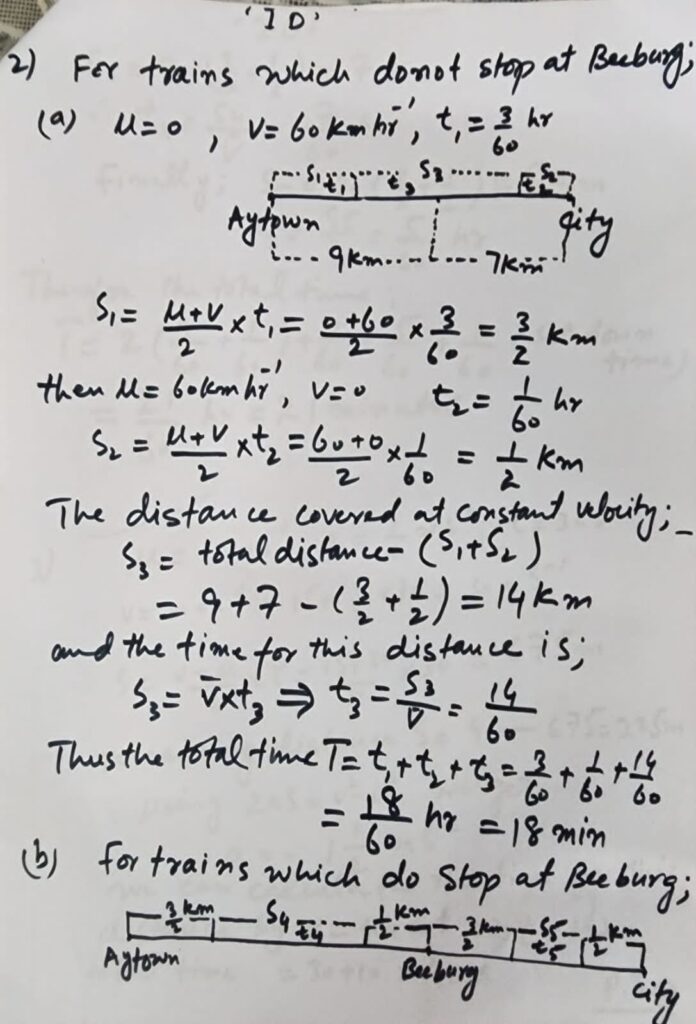 '1D'
2) For trains which donot stop at Beeburg;
(a) u=0, V=60 km hr⁻¹, t₁ = 3/60 hr
S₁ t₁ t₃ S₃ S₂ t₂
Aytown City
9km 7km
S₁ = (u+V)/2 × t₁ = (0+60)/2 × 3/60 = 3/2 km
then u = 60kmhr⁻¹, V=0 t₂ = 1/60 hr
S₂ = (u+V)/2 × t₂ = (60+0)/2 × 1/60 = 1/2 km
The distance covered at constant velocity;
S₃ = total distance - (S₁+S₂)
= 9+7 - (3/2 + 1/2) = 14 km
and the time for this distance is;
S₃ = v̄×t₃ ⇒ t₃ = S₃/v̄ = 14/60
Thus the total time T = t₁+t₂+t₃ = 3/60 + 1/60 + 14/60
= 18/60 hr = 18 min
(b) For trains which do Stop at Beeburg;
3/2 km S₄ t₄ 1/2 km 3/2 km S₅ t₅ 1/2 km
Aytown Beeburg City